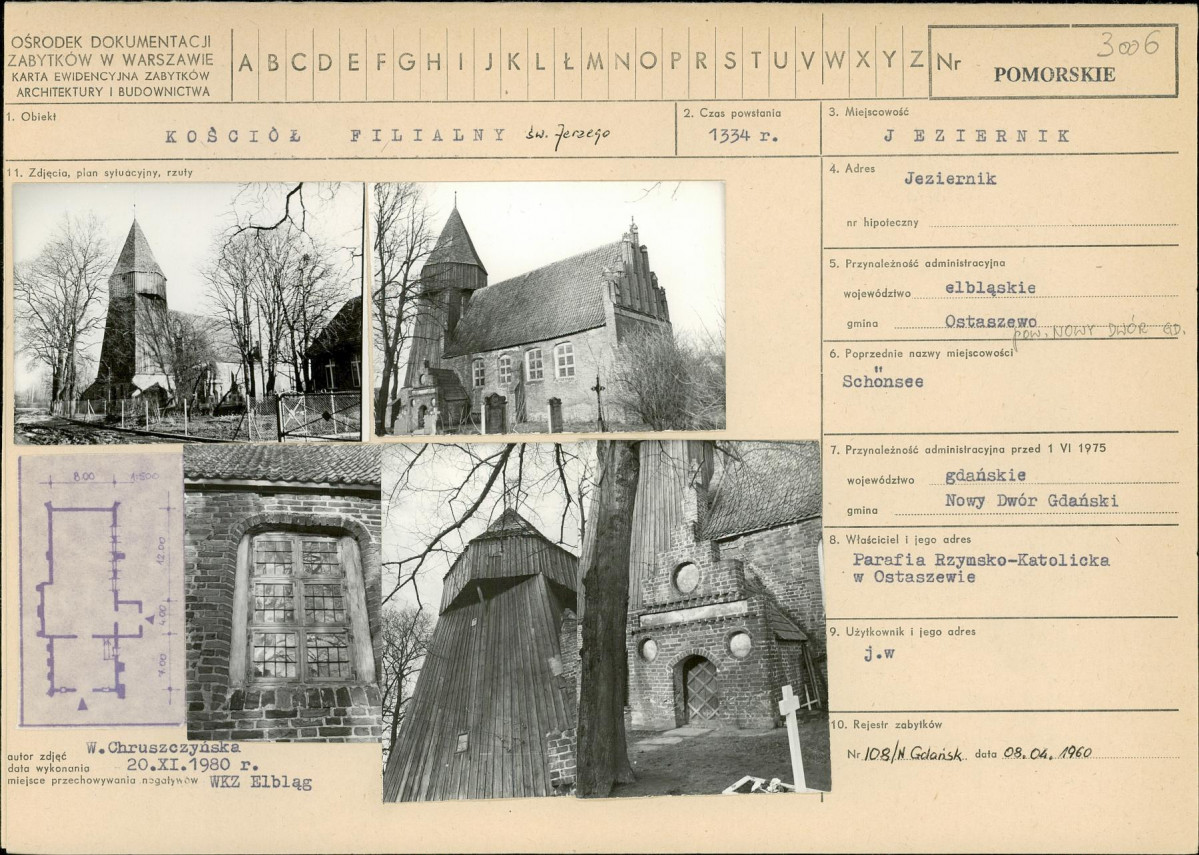 OŚRODEK DOKUMENTACJI
ZABYTKÓW W WARSZAWIE
KARTA EWIDENCYJNA ZABYTKÓW
ARCHITEKTURY I BUDOWNICTWA
A B C D E F G H I J K L Ł M N O P R S T U V W X Y Z
Nr 3006
POMORSKIE
1. Obiekt
KOŚCIÓŁ FILIALNY św. Jerzego
2. Czas powstania
1334 r.
3. Miejscowość
JEZIERNIK
11. Zdjęcia, plan sytuacyjny, rzuty
4. Adres
Jeziernik
nr hipoteczny
5. Przynależność administracyjna
województwo elbląskie
gmina Ostaszewo
pow. NOWY DWÓR GD.
6. Poprzednie nazwy miejscowości
Schönsee
7. Przynależność administracyjna przed 1 VI 1975
województwo gdańskie
gmina Nowy Dwór Gdański
8. Właściciel i jego adres
Parafia Rzymsko-Katolicka
w Ostaszewie
9. Użytkownik i jego adres
j.w
10. Rejestr zabytków
Nr 108/N Gdańsk data 08.04.1960
8.00 1:500
12.00
4.00
7.00
autor zdjęć W.Chruszczyńska
data wykonania - 20.XI.1980 r.
miejsce przechowywania negatywów WKZ Elbląg